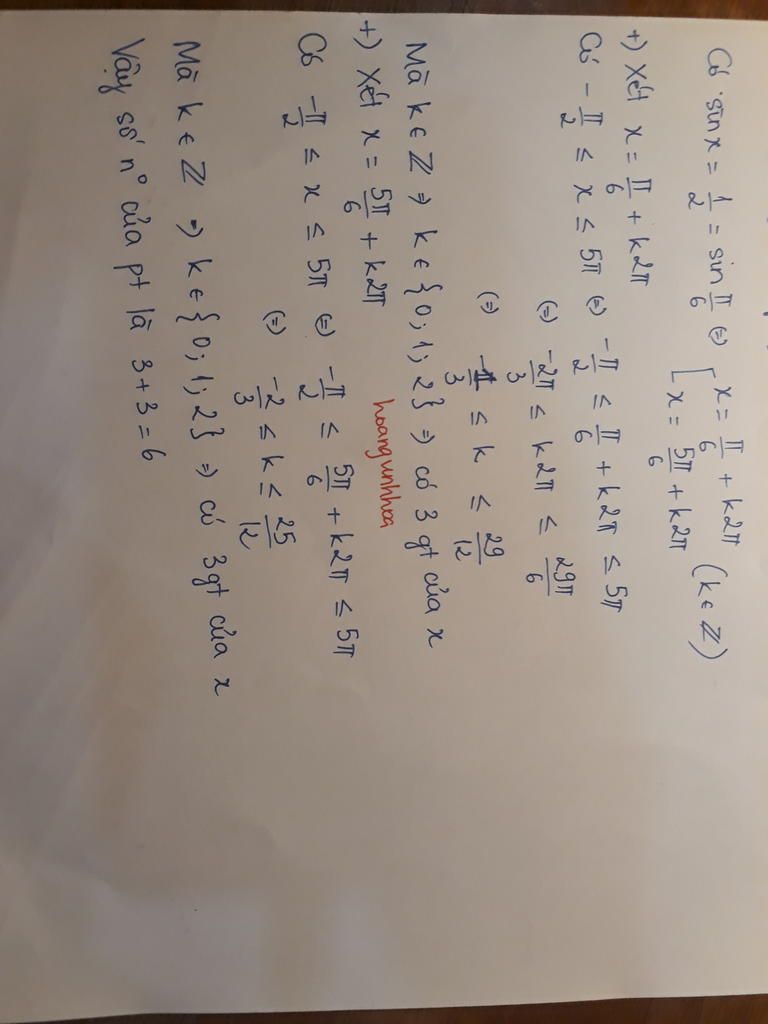 Có sin x = 1/2 = sin π/6 (=) [ x = π/6 + k2π
x = 5π/6 + k2π (k ∈ ℤ)
+) Xét x = π/6 + k2π
Có -π/2 ≤ x ≤ 5π (=) -π/2 ≤ π/6 + k2π ≤ 5π
(=) -2π/3 ≤ k2π ≤ 29π/6
(=) -1/3 ≤ k ≤ 29/12
Mà k ∈ ℤ => k ∈ {0; 1; 2} => có 3 gt của x
hoangunhhoa
+) Xét x = 5π/6 + k2π
Có -π/2 ≤ x ≤ 5π (=) -π/2 ≤ 5π/6 + k2π ≤ 5π
(=) -2/3 ≤ k ≤ 25/12
Mà k ∈ ℤ => k ∈ {0; 1; 2} => có 3 gt của x
Vậy số n° của pt là 3+3 = 6